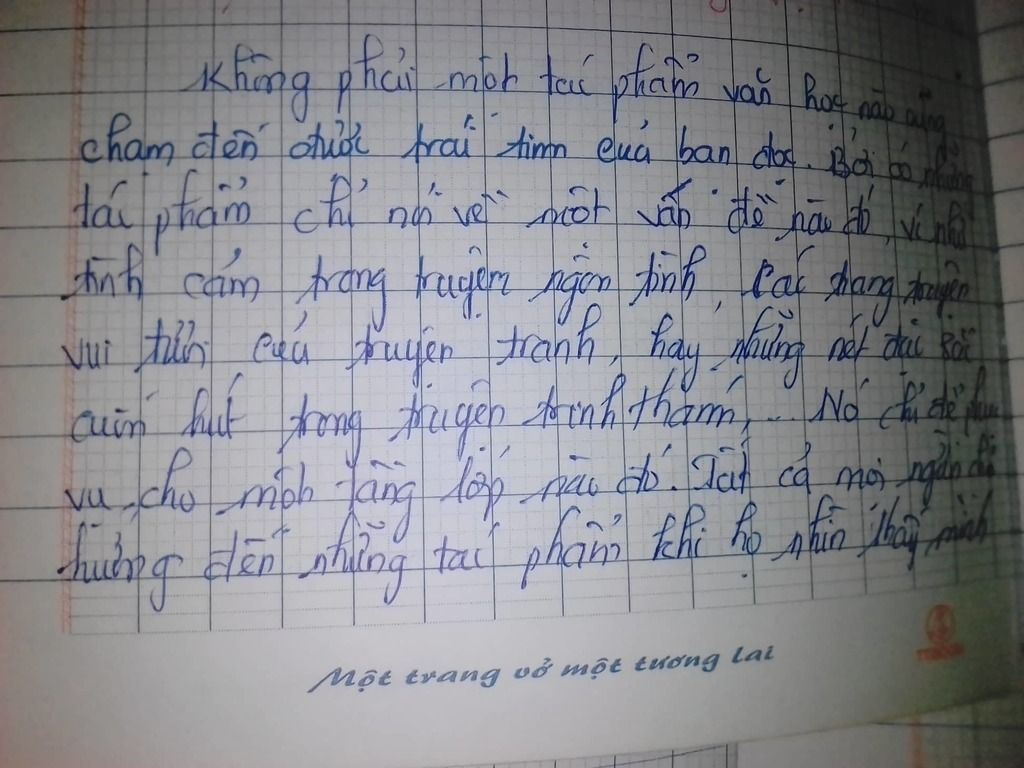 Không phải một tác phẩm văn học nào cũng
chạm đến được trái tim của bạn đọc. Bởi có những
tác phẩm chỉ nói về một vấn đề nào đó, ví như
tình cảm trong truyện ngôn tình, các trang truyện
vui tươi của truyện tranh, hay những nét
cuốn hút trong truyện trinh thám,... Nó chỉ để phục
vụ cho một tầng lớp nào đó. Tất cả mọi
hướng đến những tác phẩm khi họ nhìn thấy mình
Một trang vở một tương lai